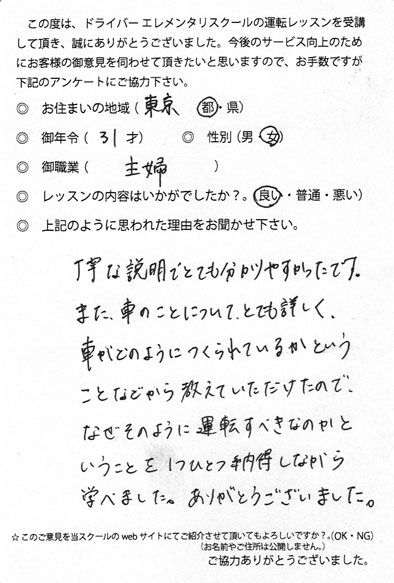 この度は、ドライバー エレメンタリスクールの運転レッスンを受講
して頂き、誠にありがとうございました。今後のサービス向上のため
にお客様の御意見を伺わせて頂きたいと思いますので、お手数ですが
下記のアンケートにご協力下さい。
◎ お住まいの地域（東京 都・県）
◎ 御年令（31才） ◎ 性別（男・女）
◎ 御職業（主婦）
◎ レッスンの内容はいかがでしたか？。（良い・普通・悪い）
◎ 上記のように思われた理由をお聞かせ下さい。
丁寧な説明でとても分かりやすかったです。
また、車のことについて、とても詳しく、
車がどのようにつくられているかという
ことなどから教えていただけたので、
なぜそのように運転すべきなのかと
いうことを1つひとつ納得しながら
学べました。ありがとうございました。
☆このご意見を当スクールの web サイトにてご紹介させて頂いてもよろしいですか？。（OK・NG）
（お名前やご住所は公開しません。）
ご協力ありがとうございました。